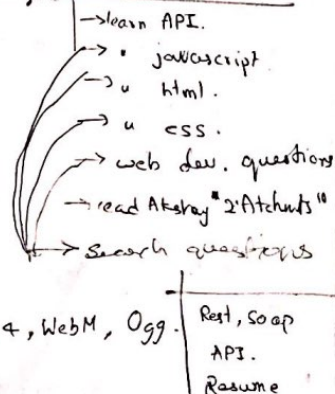 →learn API.
→ " javascript.
→ " html.
→ " css.
→ web dev. questions
→ read Akshay "2
→ Search questions
4, WebM, Ogg.
Rest, Soap
API.
Resume